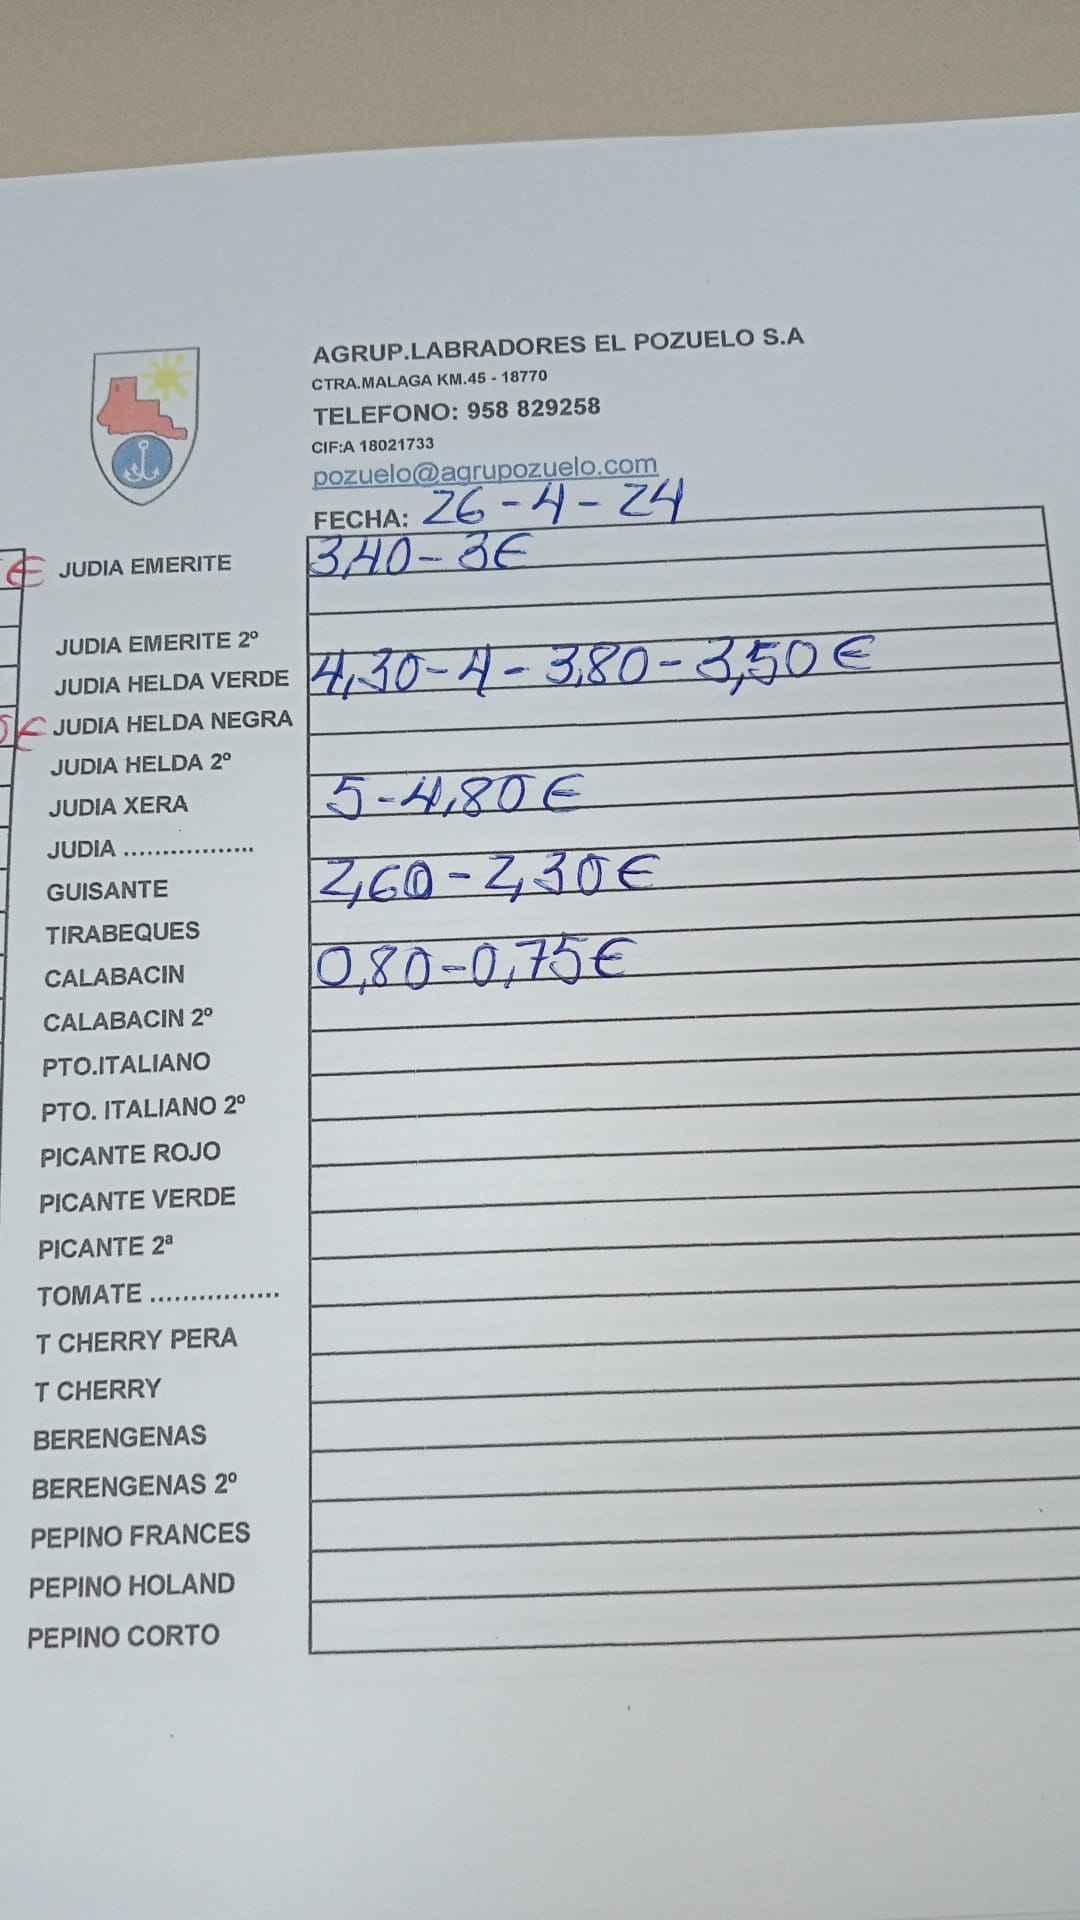 AGRUP.LABRADORES EL POZUELO S.A
CTRA.MALAGA KM.45 - 18770
TELEFONO: 958 829258
CIF:A 18021733
pozuelo@agrupozuelo.com
FECHA: 26-4-24
€ JUDIA EMERITE 3,40-3€
JUDIA EMERITE 2º
JUDIA HELDA VERDE 4,30-4-3,80-3,50€
€ JUDIA HELDA NEGRA
JUDIA HELDA 2º
JUDIA XERA 5-4,80€
JUDIA .................
GUISANTE 2,60-2,30€
TIRABEQUES
CALABACIN 0,80-0,75€
CALABACIN 2º
PTO.ITALIANO
PTO. ITALIANO 2º
PICANTE ROJO
PICANTE VERDE
PICANTE 2ª
TOMATE ................
T CHERRY PERA
T CHERRY
BERENGENAS
BERENGENAS 2º
PEPINO FRANCES
PEPINO HOLAND
PEPINO CORTO